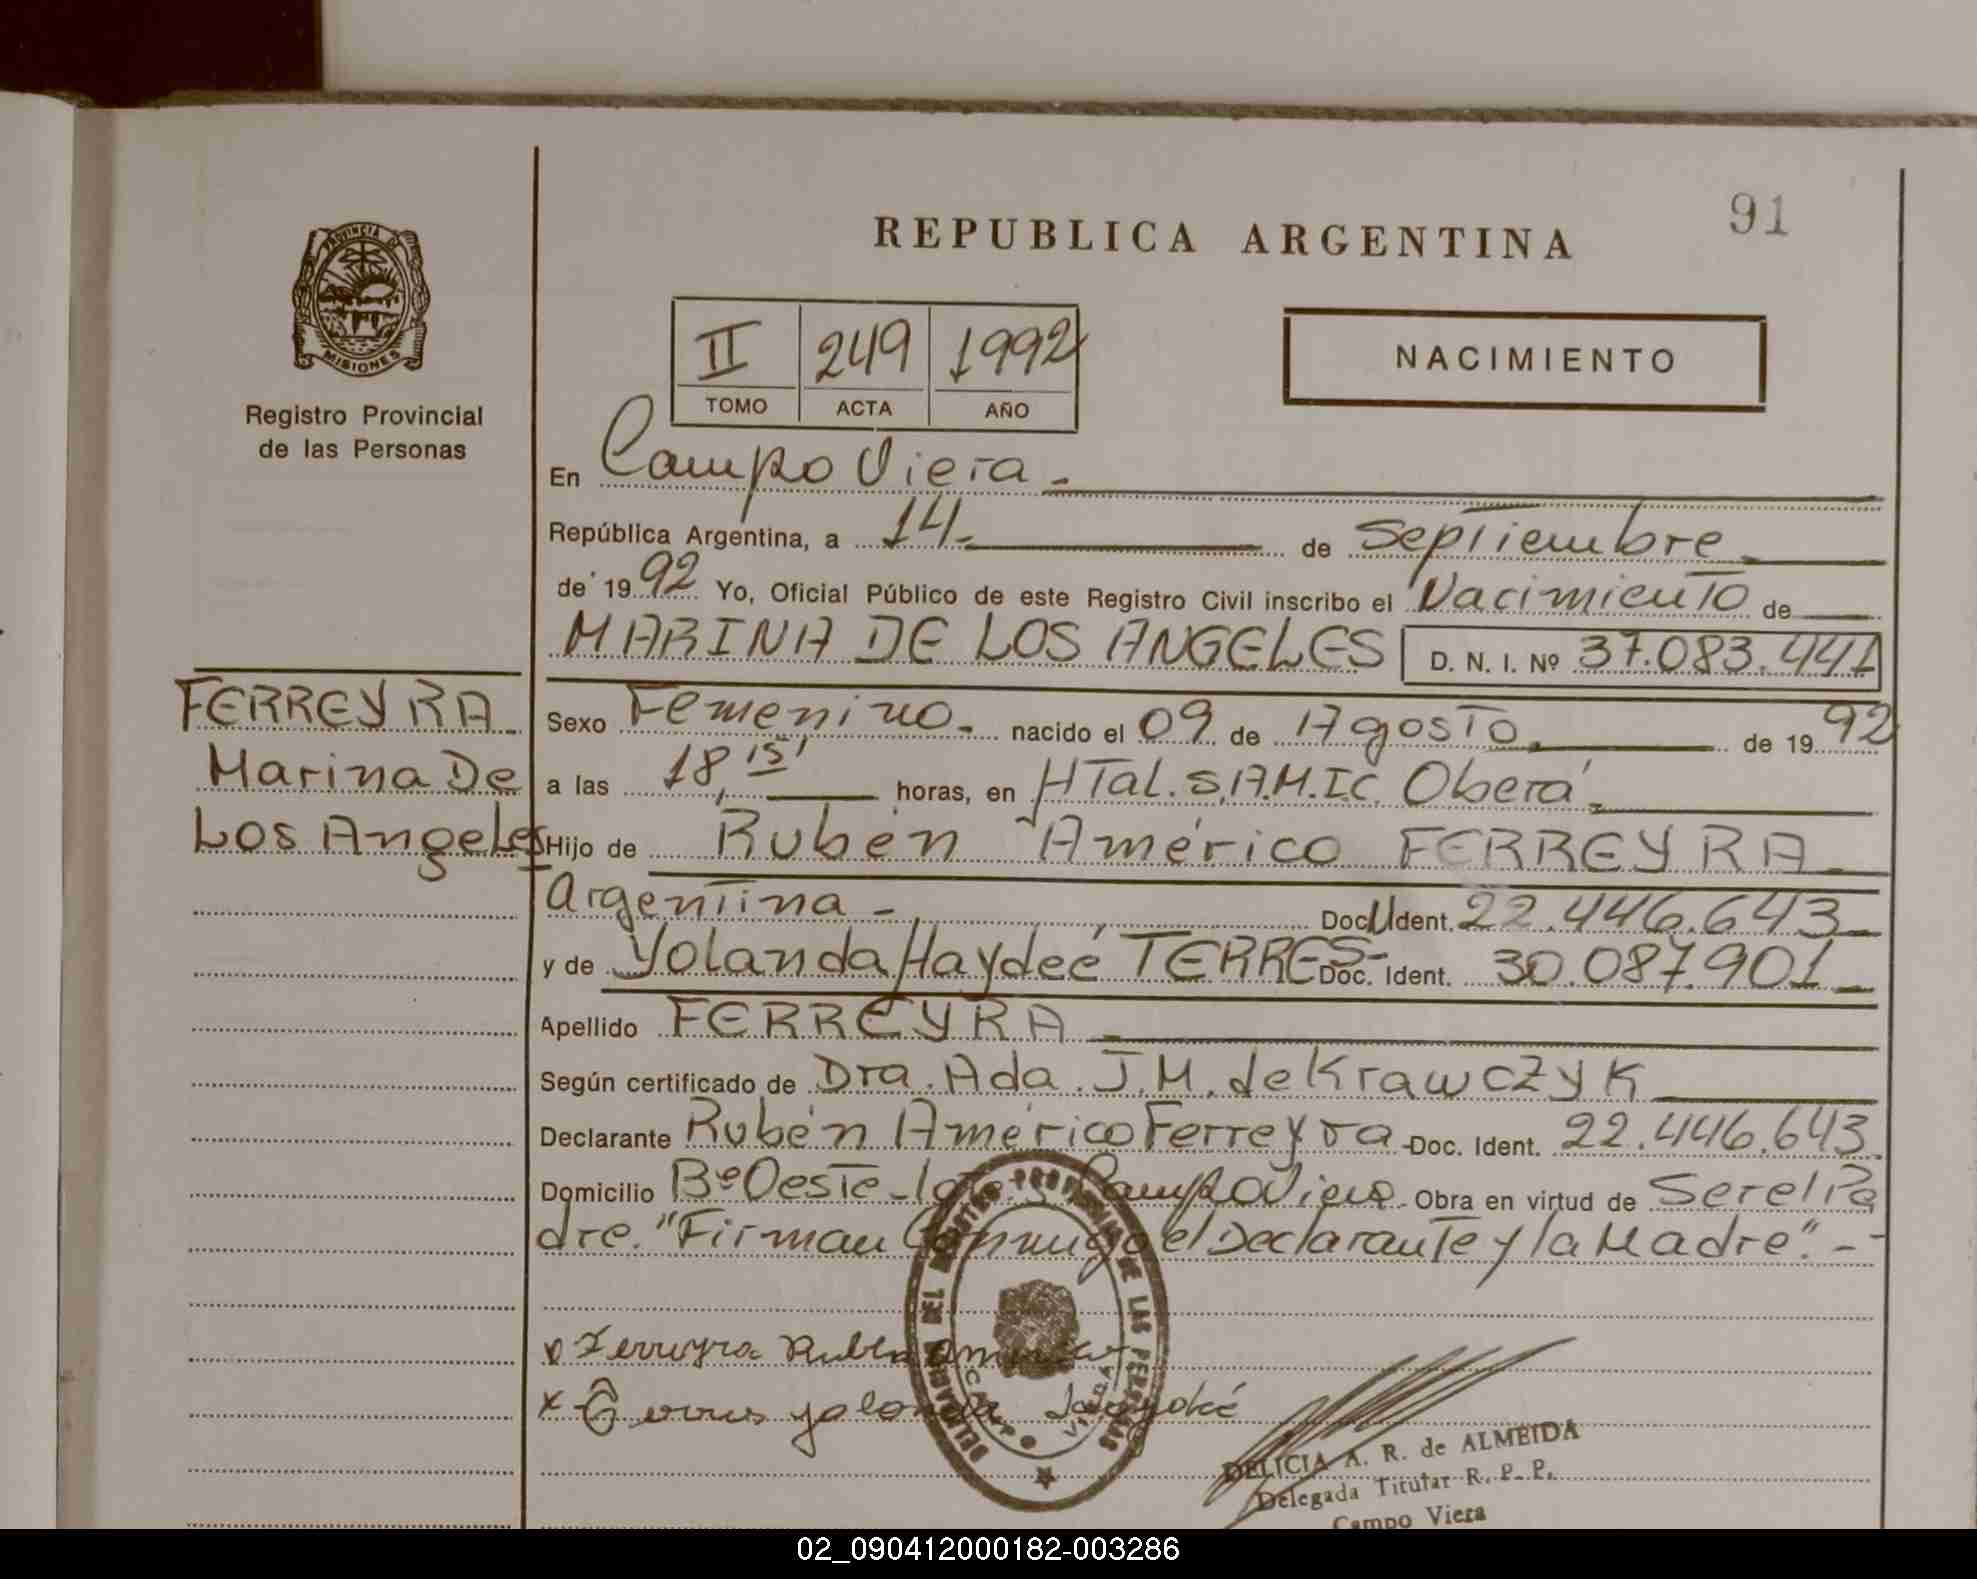 91
REPUBLICA ARGENTINA
PROVINCIA DE
MISIONES
Registro Provincial
de las Personas
II 249 1992
TOMO ACTA AÑO
NACIMIENTO
En Campo Viera.
República Argentina, a 14 de Septiembre
de 1992 Yo, Oficial Público de este Registro Civil inscribo el Nacimiento de
MARINA DE LOS ANGELES D. N. I. Nº 37.083.441
FERREYRA
Marina De
Los Angeles
Sexo Femenino. nacido el 09 de Agosto de 1992
a las 18,15' horas, en HTal. S.A.M.I.C. Oberá.
Hijo de Rubén Américo FERREYRA
Argentina - DocU Ident. 22.446.643
y de Yolanda Haydeé TERRES- Doc. Ident. 30.087.901
Apellido FERREYRA
Según certificado de Dra. Ada. J.M. de Krawczyk
Declarante Rubén Américo Ferreyra Doc. Ident. 22.446.643
Domicilio Bº Oeste Campo Viera Obra en virtud de Ser el Pa
dre. "Firman Conmigo el Declarante y la Madre". -
Ferreyra Ruben Americo
x Terres yolanda Haydeé
DELEGACION DEL REGISTRO PROVINCIAL DE LAS PERSONAS
CAMPO VIERA
DELICIA A. R. de ALMEIDA
Delegada Titular R. P. P.
Campo Viera
02_090412000182-003286